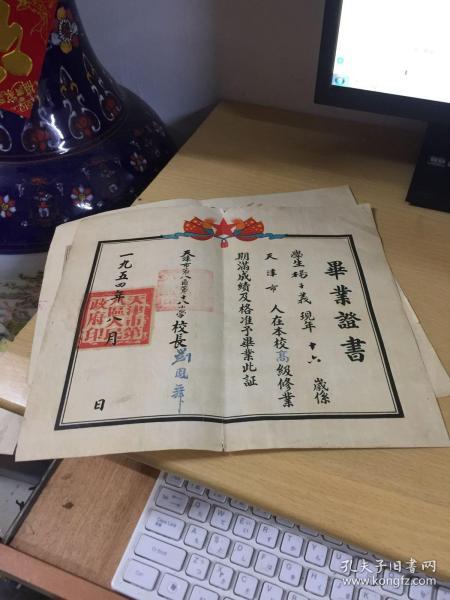 畢業證書
學生楊子義現年十六歲係
天津市人在本校高級修業
期滿成績及格准予畢業此証
天津市第八區第十八小學校長劉鳳舞
一九五四年八月 日
天津市第八區人民政府印
孔夫子旧书网
www.kongfz.com